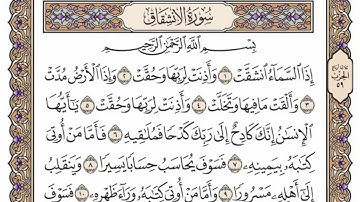 سُورَةُ الانشِقَاقِ
بِسْمِ اللَّهِ الرَّحْمَٰنِ الرَّحِيمِ
إِذَا السَّمَاءُ انشَقَّتْ ١ وَأَذِنَتْ لِرَبِّهَا وَحُقَّتْ ٢ وَإِذَا الْأَرْضُ مُدَّتْ
٣ وَأَلْقَتْ مَا فِيهَا وَتَخَلَّتْ ٤ وَأَذِنَتْ لِرَبِّهَا وَحُقَّتْ ٥ يَٰأَيُّهَا
الْإِنسَٰنُ إِنَّكَ كَادِحٌ إِلَىٰ رَبِّكَ كَدْحًا فَمُلَٰقِيهِ ٦ فَأَمَّا مَنْ أُوتِيَ
كِتَٰبَهُ بِيَمِينِهِ ٧ فَسَوْفَ يُحَاسَبُ حِسَابًا يَسِيرًا ٨ وَيَنقَلِبُ
إِلَىٰ أَهْلِهِ مَسْرُورًا ٩ وَأَمَّا مَنْ أُوتِيَ كِتَٰبَهُ وَرَاءَ ظَهْرِهِ ١٠ فَسَوْفَ
الحزب
٥٩